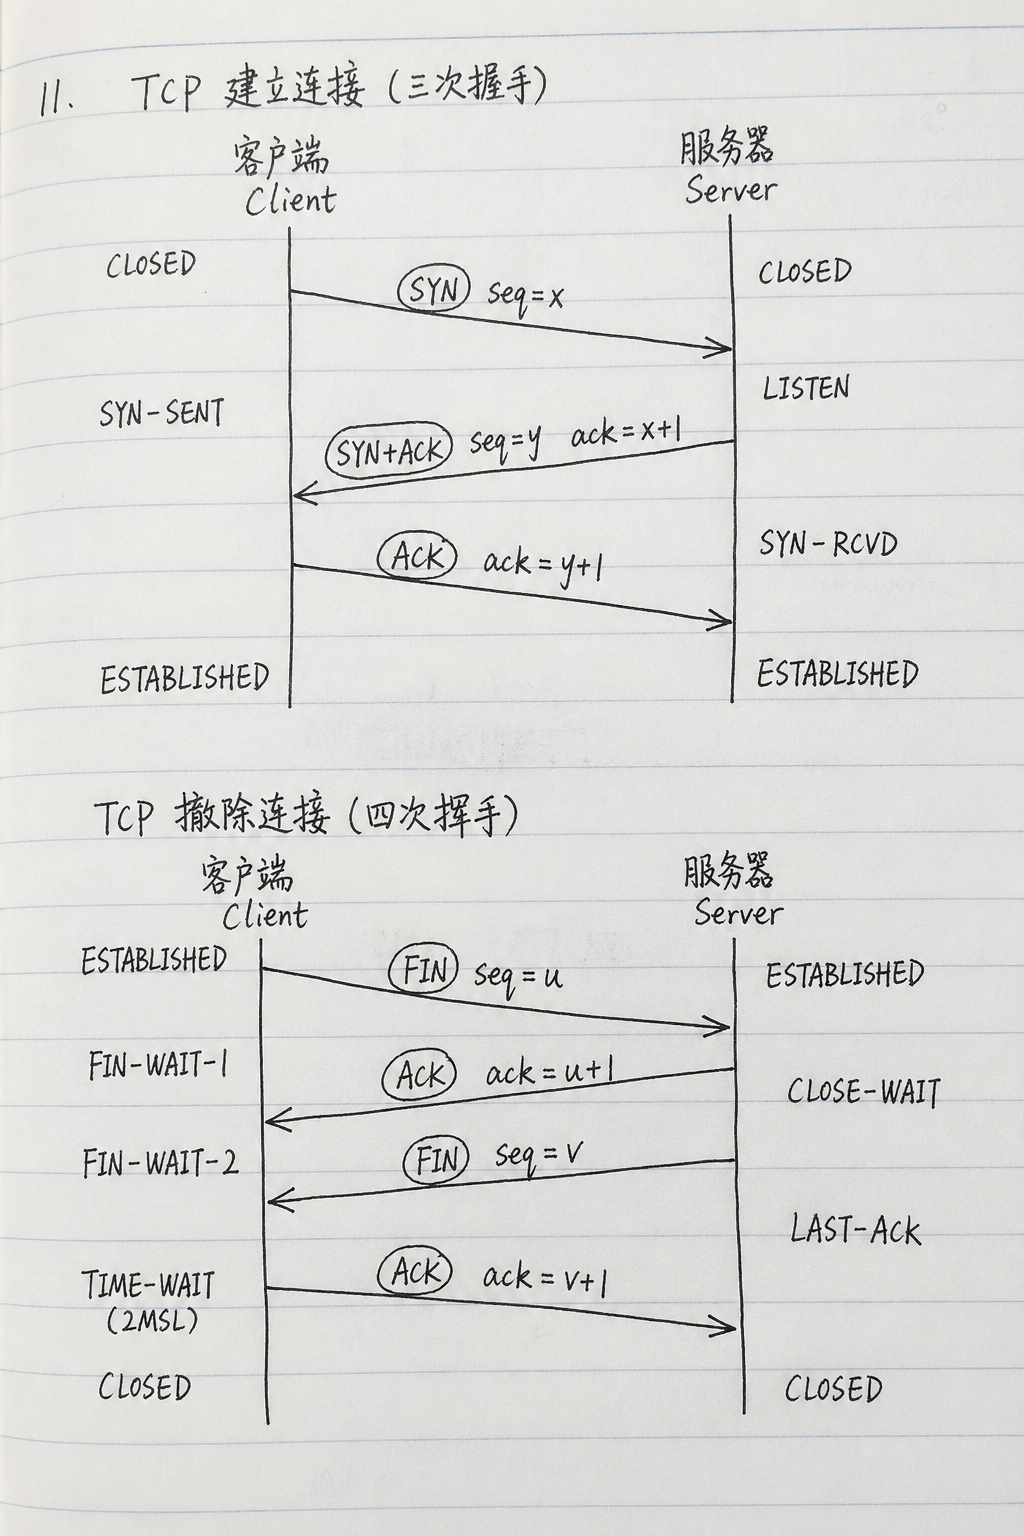 11. TCP 建立连接 (三次握手)
客户端 服务器
Client Server
CLOSED CLOSED
SYN seq=x
LISTEN
SYN-SENT
SYN+ACK seq=y ack=x+1
SYN-RCVD
ACK ack=y+1
ESTABLISHED ESTABLISHED
TCP 撤除连接 (四次挥手)
客户端 服务器
Client Server
ESTABLISHED FIN seq=u ESTABLISHED
FIN-WAIT-1 ACK ack=u+1 CLOSE-WAIT
FIN-WAIT-2 FIN seq=v
LAST-ACK
TIME-WAIT ACK ack=v+1
(2MSL)
CLOSED CLOSED